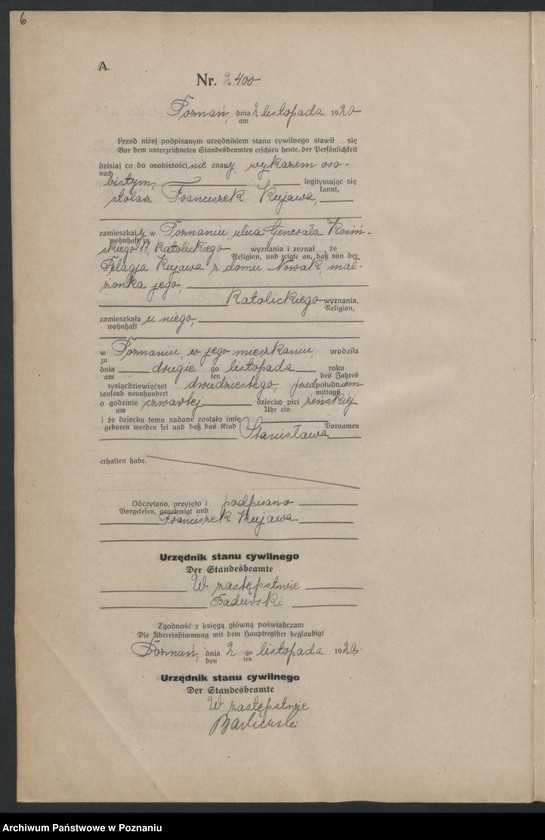 6
A.
Nr. 2400
Poznań, dnia 2 listopada 1920
am
Przed niżej podpisanym urzędnikiem stanu cywilnego stawił się
Vor dem unterzeichneten Standesbeamten erschien heute, der Persönlichkeit
dzisiaj co do osobistości nie znany, wykazem oso-
nach
bistym, legitymując się
kannt,
stolarz Franciszek Kujawa,
zamieszkały w Poznaniu, ulica Generała Kosiń-
wohnhaft in
skiego 11, katolickiego wyznania i zeznał że
Religion, und zeigte an, daß von der
Pelagja Kujawa z domu Nowak, mał-
żonka jego,
katolickiego wyznania,
Religion,
zamieszkała u niego,
wohnhaft
w Poznaniu, w jego mieszkaniu, urodziła
zu
dnia drugiego listopada roku
am ten des Jahres
tysiącdziewięćset dwudziestego, przedpołudniem
tausend neunhundert mittags
o godzinie czwartej dziecko płci żeńskiej
um Uhr ein
i że dziecku temu nadane zostało imię
geboren worden sei und daß das Kind Vornamen
Stanisława
erhalten habe.
Odczytano, przyjęto i podpisano
Vorgelesen, genehmigt und
Franciszek Kujawa
Urzędnik stanu cywilnego
Der Standesbeamte
W zastępstwie
Zgodność z księgą główną poświadczam
Die Übereinstimmung mit dem Hauptregister beglaubigt
Poznań, dnia 2 go listopada 1920
den ten
Urzędnik stanu cywilnego
Der Standesbeamte
W zastępstwie
Archiwum Państwowe w Poznaniu